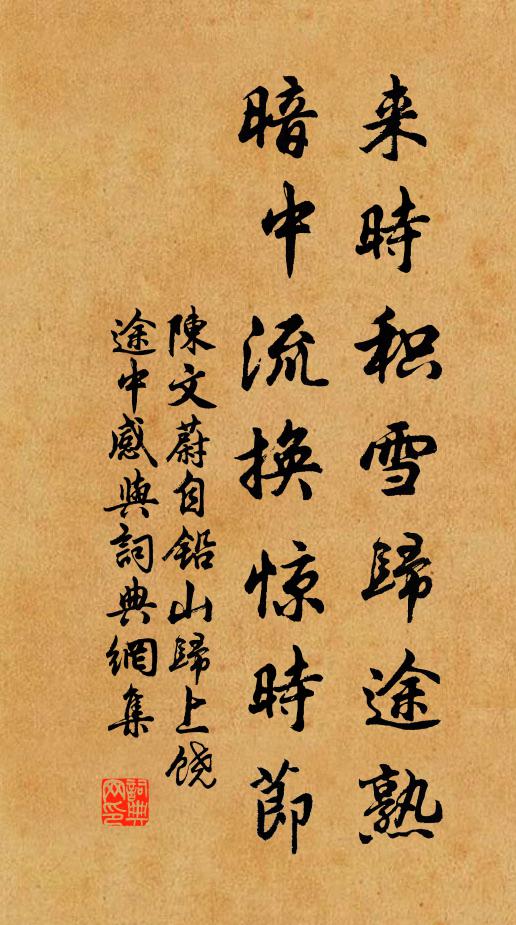 来時积雪歸途熟
暗中流换惊時節
陳文蔚自鉛山歸上饒
途中感興詞典網集
詞典网印